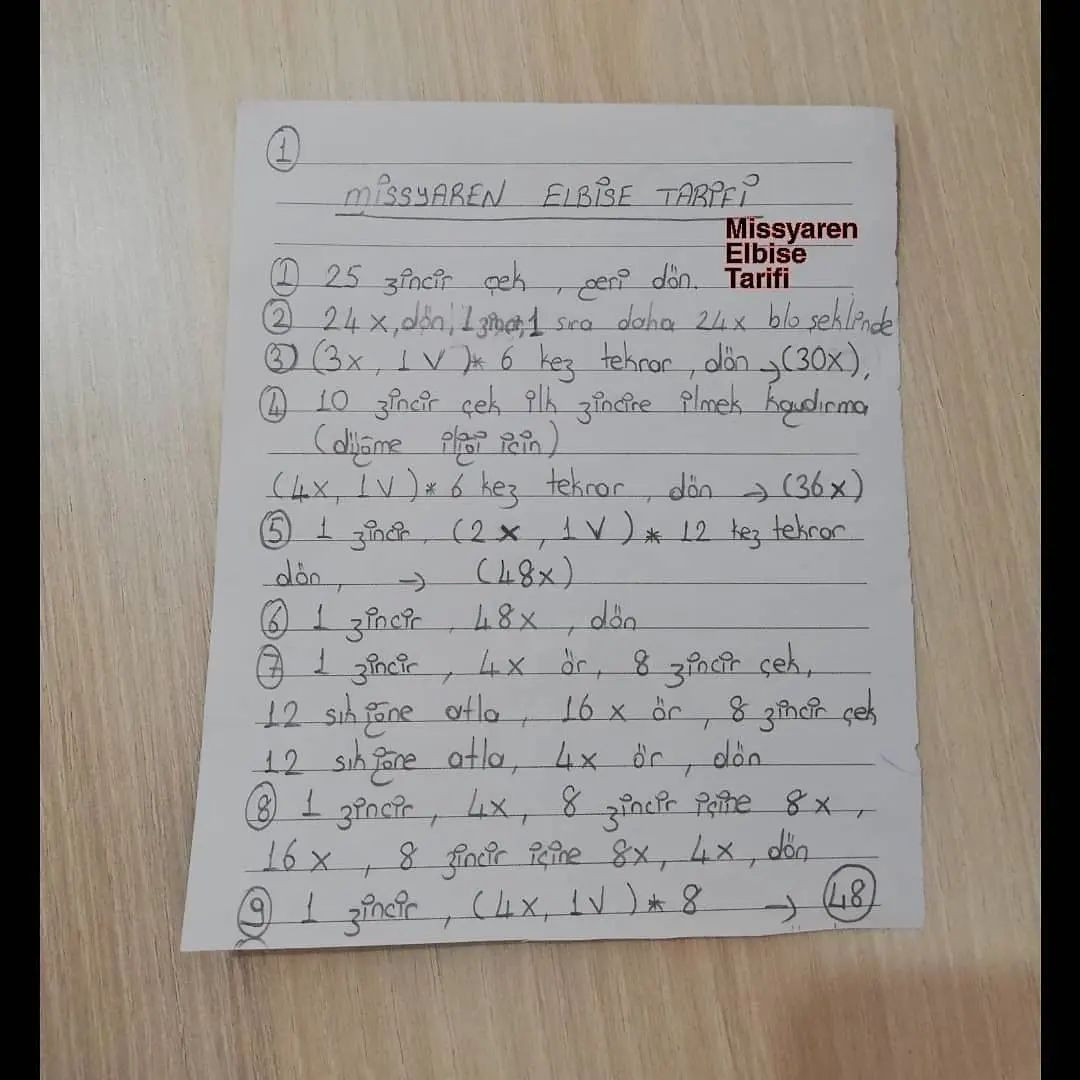 1
MİSSYAREN ELBİSE TARİFİ
Missyaren
Elbise
Tarifi
1 25 zincir çek, geri dön.
2 24x, dön, 1 zincir, 1 sıra daha 24x blo şeklinde
3 (3x, 1V)* 6 kez tekrar, dön → (30x),
4 10 zincir çek ilk zincire ilmek kaydırma
(düğme iliği için)
(4x, 1V)* 6 kez tekrar, dön → (36x)
5 1 zincir, (2x, 1V)* 12 kez tekrar
dön, → (48x)
6 1 zincir, 48x, dön
7 1 zincir, 4x ör, 8 zincir çek,
12 sık iğne atla, 16x ör, 8 zincir çek
12 sık iğne atla, 4x ör, dön
8 1 zincir, 4x, 8 zincir içine 8x,
16x, 8 zincir içine 8x, 4x, dön
9 1 zincir, (4x, 1V)* 8 → 48